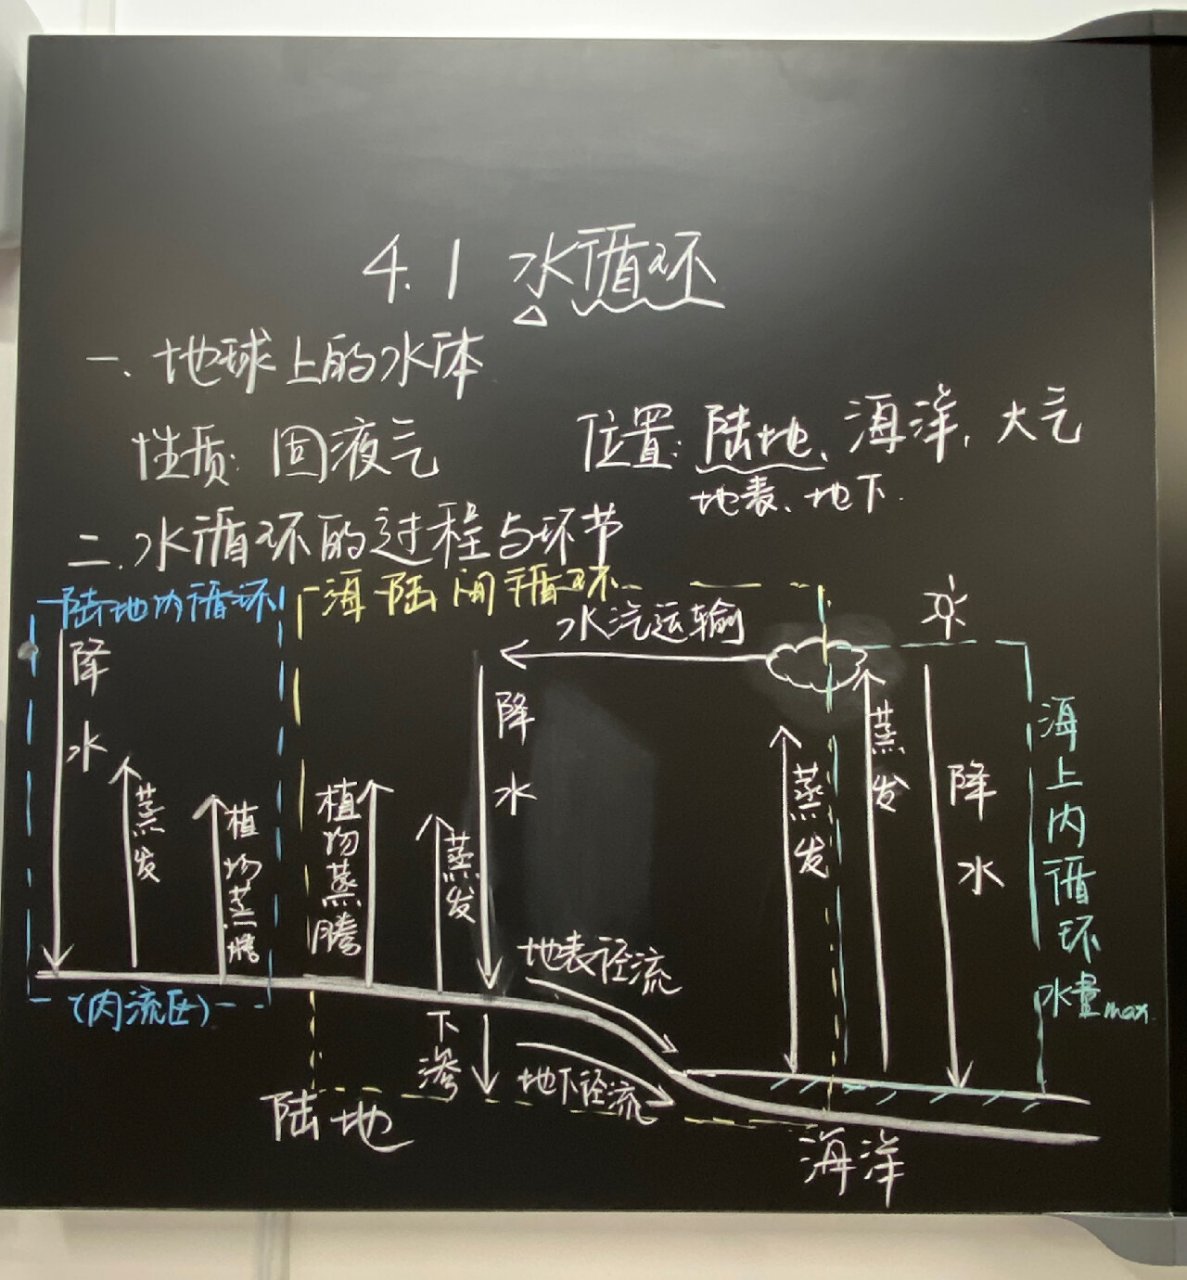 4.1 水循环
一.地球上的水体
性质:固液气
位置:陆地、海洋、大气
地表、地下.
二.水循环的过程与环节
陆地内循环
海陆间循环
水汽运输
降水
蒸发
植物蒸腾
植物蒸腾
蒸发
降水
蒸发
蒸发
降水
海上内循环
水量max.
地表径流
(内流区)
下渗
地下径流
陆地
海洋